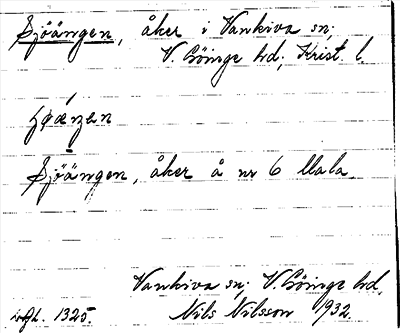 Sjöängen, åker i Vankiva sn;
V. Göinge hd; Krist. l.
Sjöängen, åker å nr 6 Mala
Vankiva sn; V. Göinge hd.
Nils Nilsson 1932.
1325